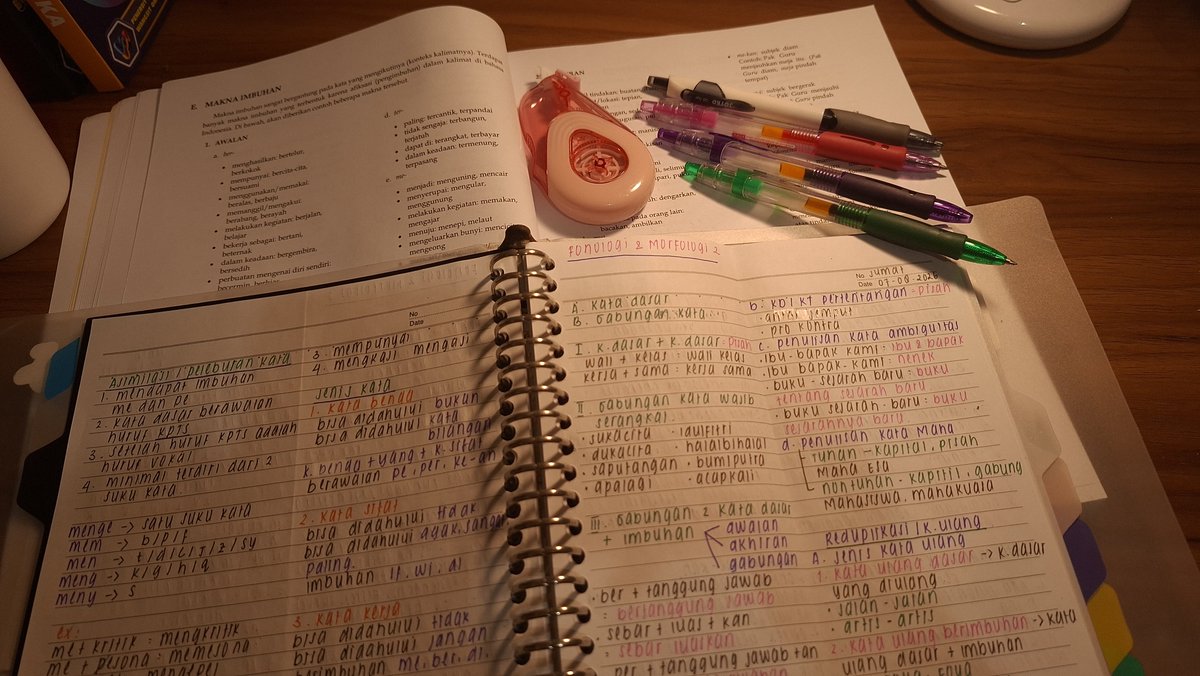 E. MAKNA IMBUHAN
Makna imbuhan sangat bergantung pada kata yang mengikutinya (konteks kalimatnya). Terdapat
banyak makna imbuhan yang terbentuk karena afiksasi (pengimbuhan) dalam kalimat di bahasa
Indonesia. Di bawah, akan diberikan contoh beberapa makna tersebut.
1. AWALAN
a. ber-
• menghasilkan: bertelur,
berkokok
• mempunyai: bercita-cita,
bersuami
• menggunakan/memakai:
beralas, berbaju
• memanggil/mengaku:
berabang, berayah
• melakukan kegiatan: berjalan,
belajar
• bekerja sebagai: bertani,
beternak
• dalam keadaan: bergembira,
bersedih
• perbuatan mengenai diri sendiri:
bercermin,
d. ter-
• paling: tercantik, terpandai
• tidak sengaja: terbangun,
terjatuh
• dapat di: terangkat, terbayar
• dalam keadaan: termenung,
terpasang
e. me-
• menjadi: menguning, mencair
• menyerupai: mengular,
menggunung
• melakukan kegiatan: memakan,
mengajar
• menuju: menepi, melaut
• mengeluarkan bunyi:
mengeong
tindakan: buatan,
/lokasi: tepian,
dengarkan,
pada orang lain:
bacakan, ambilkan
me-kan: subjek diam
Contoh: Pak Guru
memindahkan meja itu. (Pak
Guru diam, meja pindah
tempat)
subjek bergerak
Pak Guru menjauhi
Guru pindah
No
Date
Asimilasi / peleburan kata
1. mendapat imbuhan
me dan pe
2. kata dasar berawalan
huruf KPTS
3. setelah huruf KPTS adalah
huruf vokal
4. minimal terdiri dari 2
suku kata
menge -> satu suku kata
mem -> b/p/f
men -> t/d/c/j/z/sy
meng -> k/g/h/q
meny -> s
ex:
me + kritik = mengkritik
me + pesona = memesona
3. mempunyai
4. mengkaji mengaji
jenis kata
1. kata benda
bisa didahului bukan
bisa didahului kata
bilangan
k. benda + yang + k. sifat
berawalan pe, per, ke-an
2. kata sifat
bisa didahului tidak
bisa didahului agak, sangat
paling.
imbuhan
3. kata kerja
bisa didahului tidak
bisa didahului jangan
berimbuhan me, ber, di,
Fonologi & Morfologi 2
No Jumat
A. kata dasar
B. Gabungan kata
I. k. dasar + k. dasar: pisah
wali + kelas: wali kelas
kerja + sama: kerja sama
II. Gabungan kata wajib
serangkai
· sukacita · idulfitri
· dukacita · halalbihalal
· saputangan · bumiputra
· apalagi · acapkali
III. Gabungan 2 kata dasar
+ imbuhan
awalan
akhiran
gabungan
· ber + tanggung jawab
: bertanggung jawab
· sebar + luas + kan
: sebar luaskan
· per + tanggung jawab + an
b. pertentangan = pisah
· antar jemput
· pro kontra
c. penulisan kata ambiguitas
· ibu-bapak kami: ibu & bapak
· ibu bapak-kami: nenek
· buku-sejarah baru: buku
tentang sejarah baru
· buku sejarah-baru: buku
sejarahnya baru
d. penulisan kata Maha
Tuhan - kapital, pisah
Maha Esa
nontuhan - kapitil, gabung
Mahasiswa, mahakuasa
Reduplikasi / k. ulang
A. jenis kata ulang
1. kata ulang dasar -> k. dasar
yang diulang
· jalan-jalan
· artis-artis
2. kata ulang berimbuhan -> kata
ulang dasar + imbuhan